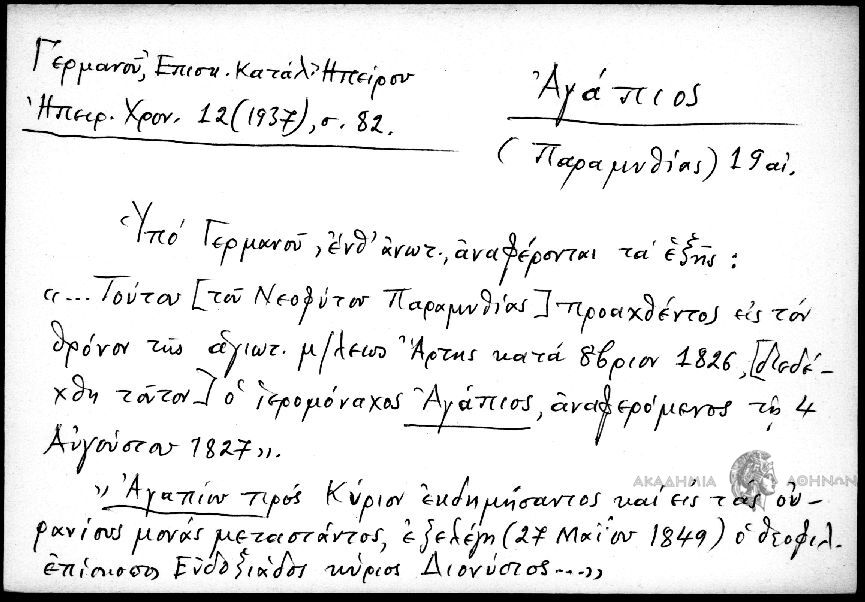 Γερμανοῦ, Ἐπισκ. Κατάλ. Ἠπείρου
Ἠπειρ. Χρον. 12 (1937), σ. 82.
Ἀγάπιος
(Παραμυθίας) 19 αἰ.
Ὑπό Γερμανοῦ, ἐνθ' ἀνωτ., ἀναφέρονται τά ἑξῆς :
«... Τούτου [τοῦ Νεοφύτου Παραμυθίας] προαχθέντος εἰς τόν
θρόνον τῆς ἁγιωτ. μ/λεως Ἄρτης κατά 8βριον 1826, [διεδέ-
χθη τοῦτον] ὁ ἱερομόναχος Ἀγάπιος, ἀναφερόμενος τῇ 4
Αὐγούστου 1827».
» Ἀγαπίου πρός Κύριον ἐκδημήσαντος καί εἰς τάς οὐ-
ρανίους μονάς μεταστάντος, ἐξελέγη (27 Μαΐου 1849) ὁ θεοφιλ.
ἐπίσκοπος Εὐδοξιάδος κύριος Διονύσιος...»
ΑΚΑΔΗΜΙΑ ΑΘΗΝΩΝ